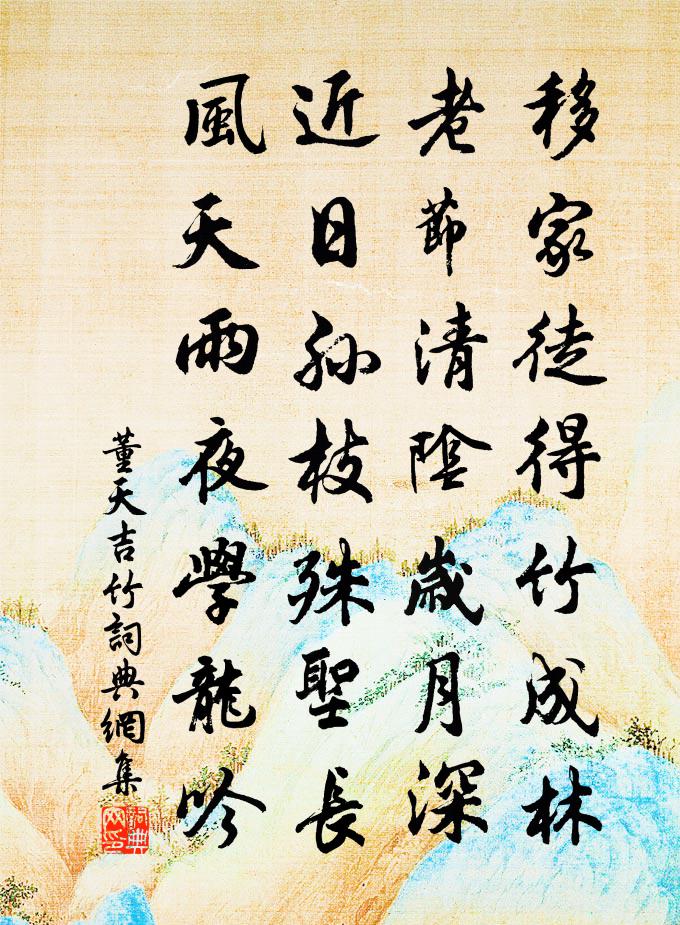 移家徒得竹成林
老節清陰歲月深
近日孫枝殊聖長
風天雨夜學龍吟
董天吉竹詞典網集
詞典网印